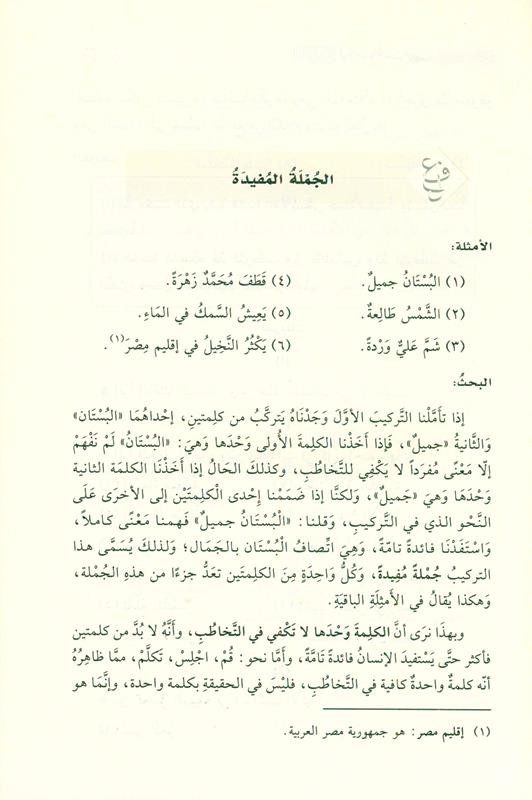 الجُمْلَةُ المُفيدَةُ
الأمثلة:
(١) البُسْتَانُ جميلٌ.
(٤) قَطَفَ مُحَمَّدٌ زَهْرَةً.
(٢) الشَّمْسُ طَالِعةٌ.
(٥) يَعِيشُ السَّمكُ في المَاءِ.
(٣) شَمَّ عَليٌّ وَرْدةً.
(٦) يَكْثُرُ النَّخِيلُ في إقليم مِصْرَ(١).
البحثُ:
إذا تأمَّلْنا التَّركيبَ الأوَّلَ وَجَدْنَاهُ يَتركَّبُ من كلِمتينِ، إحْداهُمَا «البُسْتَان»
وَالثَّانيةُ «جميلٌ»، فَإذا أخَذْنا الكلِمةَ الأُولى وَحْدَها وَهيَ: «البُسْتَانُ» لَمْ نَفْهَمْ
إلّا مَعْنًى مُفرَداً لا يَكْفِي للتَّخاطُبِ، وكذلكَ الحَالُ إذا أَخَذْنَا الكلمَة الثانية
وَحْدَها وَهيَ «جَميلٌ»، وَلكنَّا إذا ضَمَمْنا إحْدى الْكلِمَتَيْن إلى الأخرَى عَلَى
النَّحْو الذي في التَّركيبِ، وَقلنا: «الْبُسْتَانُ جميلٌ» فَهمنا مَعْنًى كاملاً،
وَاسْتَفَدْنَا فائدةً تامّةً، وَهِيَ اتِّصافُ الْبُسْتَان بالجَمَال؛ وَلذلكَ يُسَمَّى هذا
التركيبُ جُملةً مُفِيدةً، وَكُلُّ وَاحِدةٍ مِنَ الكلِمتَين تعَدُّ جزءًا من هذهِ الجُملة،
وَهكذا يُقالُ في الأمثِلةِ الباقيَةِ.
وبهذَا نرَى أنَّ الكلِمةَ وَحْدَها لا تَكْفي في التَّخاطُبِ، وَأنَّهُ لا بُدَّ من كلمتين
فأكثر حتَّى يَسْتفيدَ الإنسانُ فائدةً تَامَّةً، وَأمَّا نحو: قُمْ، اجْلِسْ، تَكلَّمْ، ممَّا ظاهِرُهُ
أنّه كلمةٌ واحدةٌ كافية في التَّخاطُبِ، فليْسَ في الحقيقةِ بكلمة واحدة، وَإنَّمَا هو
(١) إقليم مصر: هو جمهورية مصر العربية.